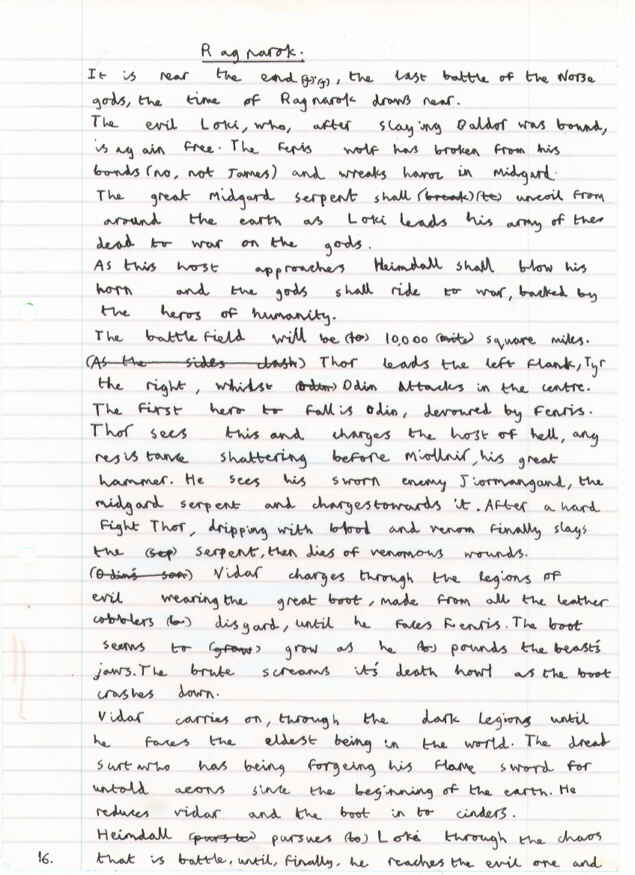 Ragnarok.
It is near the end, the last battle of the Norse
gods, the time of Ragnarok draws near.
The evil Loki, who, after slaying Baldor was bound,
is again free. The Feris wolf has broken from his
bonds (no, not James) and wreaks havoc in Midgard.
The great Midgard serpent shall (break) (to) uncoil from
around the earth as Loki leads his army of ther
dead to war on the gods.
As this host approaches Heimdall shall blow his
horn and the gods shall ride to war, backed by
the heros of humanity.
The battle field will be (to) 10,000 (mile) square miles.
(As the sides clash) Thor leads the left flank, Tyr
the right, whilst (Odin) Odin Attacks in the centre.
The first hero to fall is Odin, devoured by Fenris.
Thor sees this and charges the host of hell, any
resistance shattering before Miollnir, his great
hammer. He sees his sworn enemy Jiormangand, the
midgard serpent and charges towards it. After a hard
fight Thor, dripping with blood and venom finally slays
the (sep) serpent, then dies of venomous wounds.
(Odin's son) Vidar charges through the legions of
evil wearing the great boot, made from all the leather
cobblers (to) disgard, until he faces Fenris. The boot
seems to (grow) grow as he (to) pounds the beast's
jaws. The brute screams it's death howl as the boot
crashes down.
Vidar carries on, through the dark legions until
he faces the eldest being in the world. The dread
Surt who has being forgeing his flame sword for
untold aeons since the beginning of the earth. He
reduces vidar and the boot in to cinders.
Heimdall (purs to) pursues (to) Loki through the chaos
16. that is battle, until, finally, he reaches the evil one and